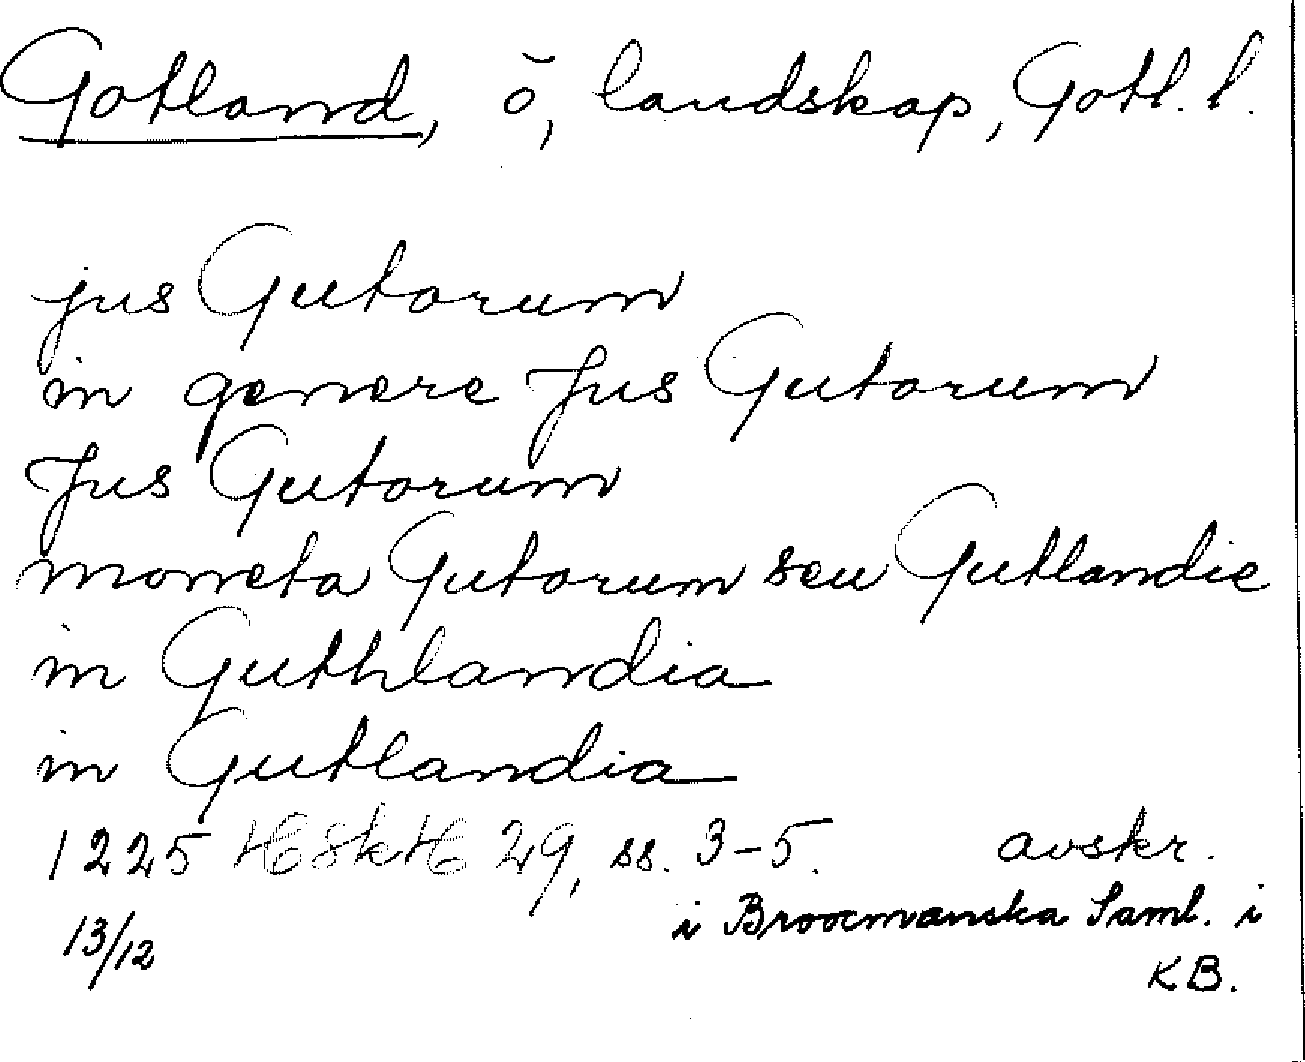 Gotland, ö, landskap, Gotl. l.
jus Gutorum
in genere Jus Gutorum
Jus Gutorum
moneta Gutorum seu Gutlandie
in Guthlandia
in Gutlandia
1225 HSkH 29, ss. 3-5. avskr.
i Broocmanska Saml. i
13/12
KB.